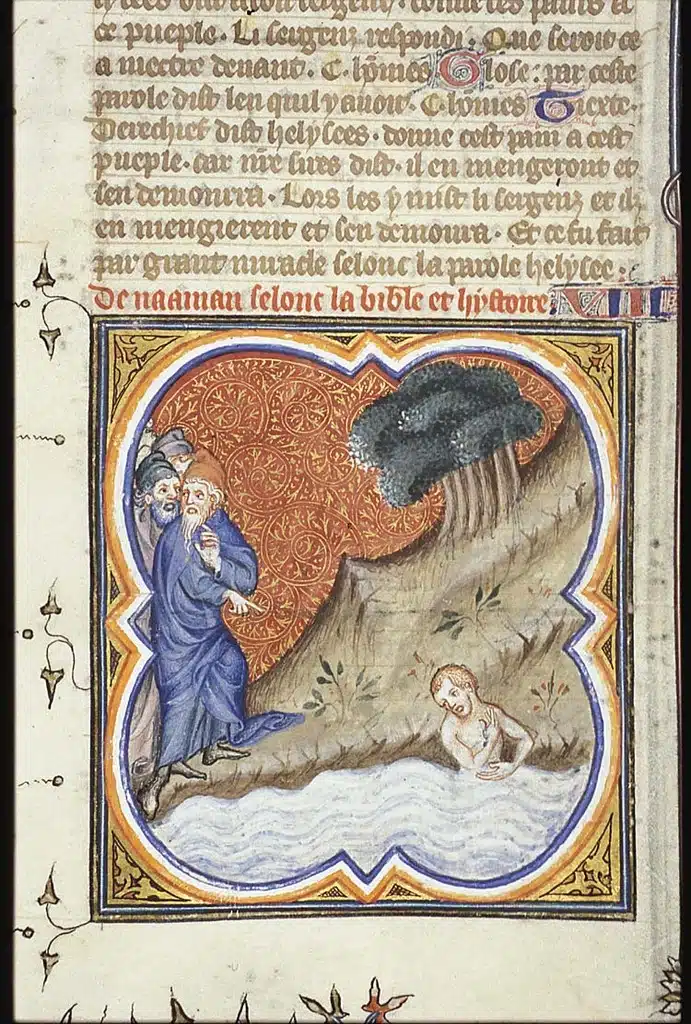 ce pueple. Li sergenz respondi. Que seroit ce
a mectre devant. C. hōmes Glose: par ceste
parole dist len quil y avoit. C. homes Tiexte.
Derechief dist helysees. donne cest pain a cest
pueple. car nr̄e sires dist. il en mengeront et
sen demourra. Lors les y mist li sergenz et ilz
en mengierent et sen demoura. Et ce fu fait
par grant miracle selonc la parole helysee.
De naaman selonc la bible et hystoire: VIII